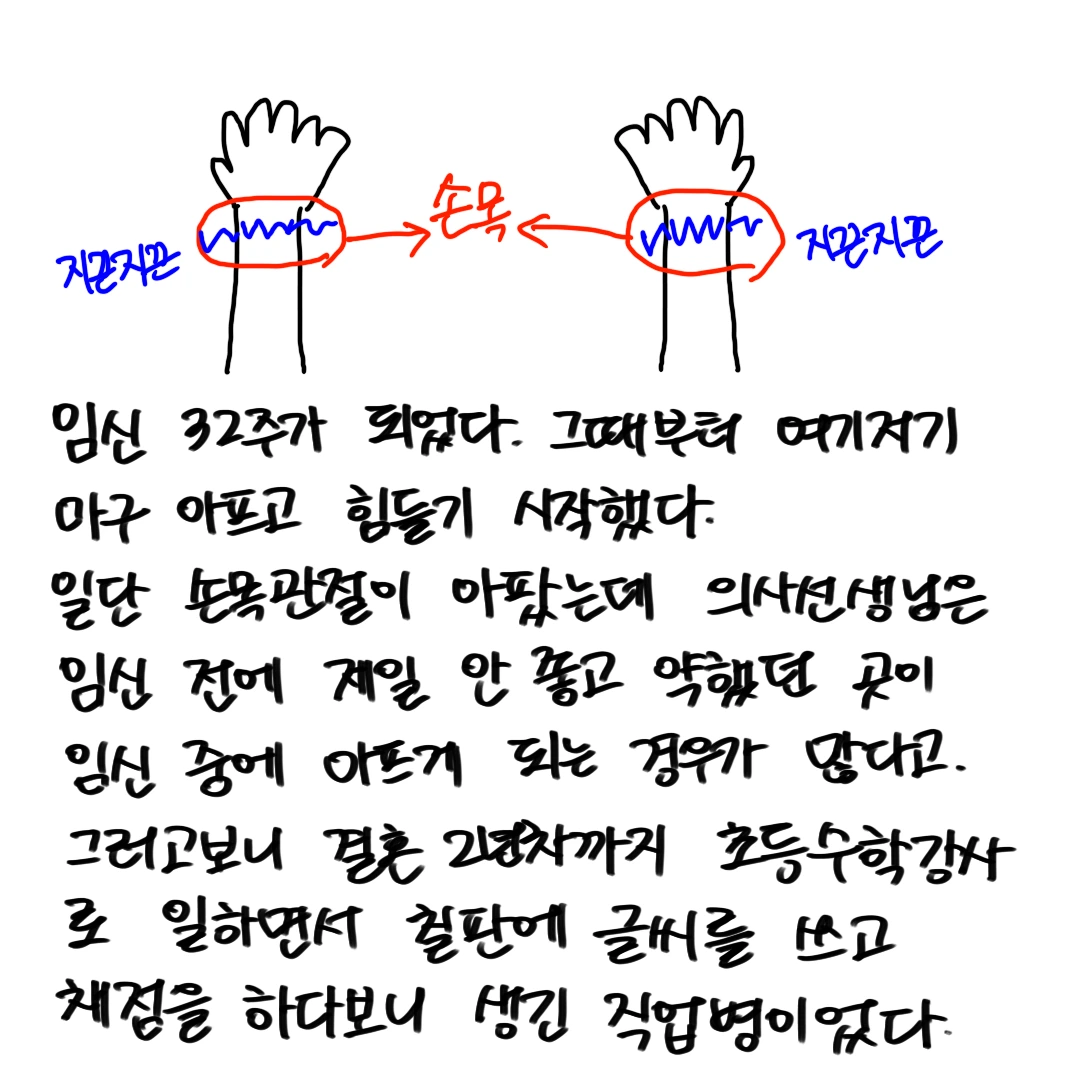 손목
지끈지끈
지끈지끈
임신 32주가 되었다. 그때부터 여기저기
마구 아프고 힘들기 시작했다.
일단 손목관절이 아팠는데 의사선생님은
임신 전에 제일 안 좋고 약했던 곳이
임신 중에 아프게 되는 경우가 많다고.
그러고보니 결혼 2년차까지 초등수학강사
로 일하면서 칠판에 글씨를 쓰고
채점을 하다보니 생긴 직업병이었다.